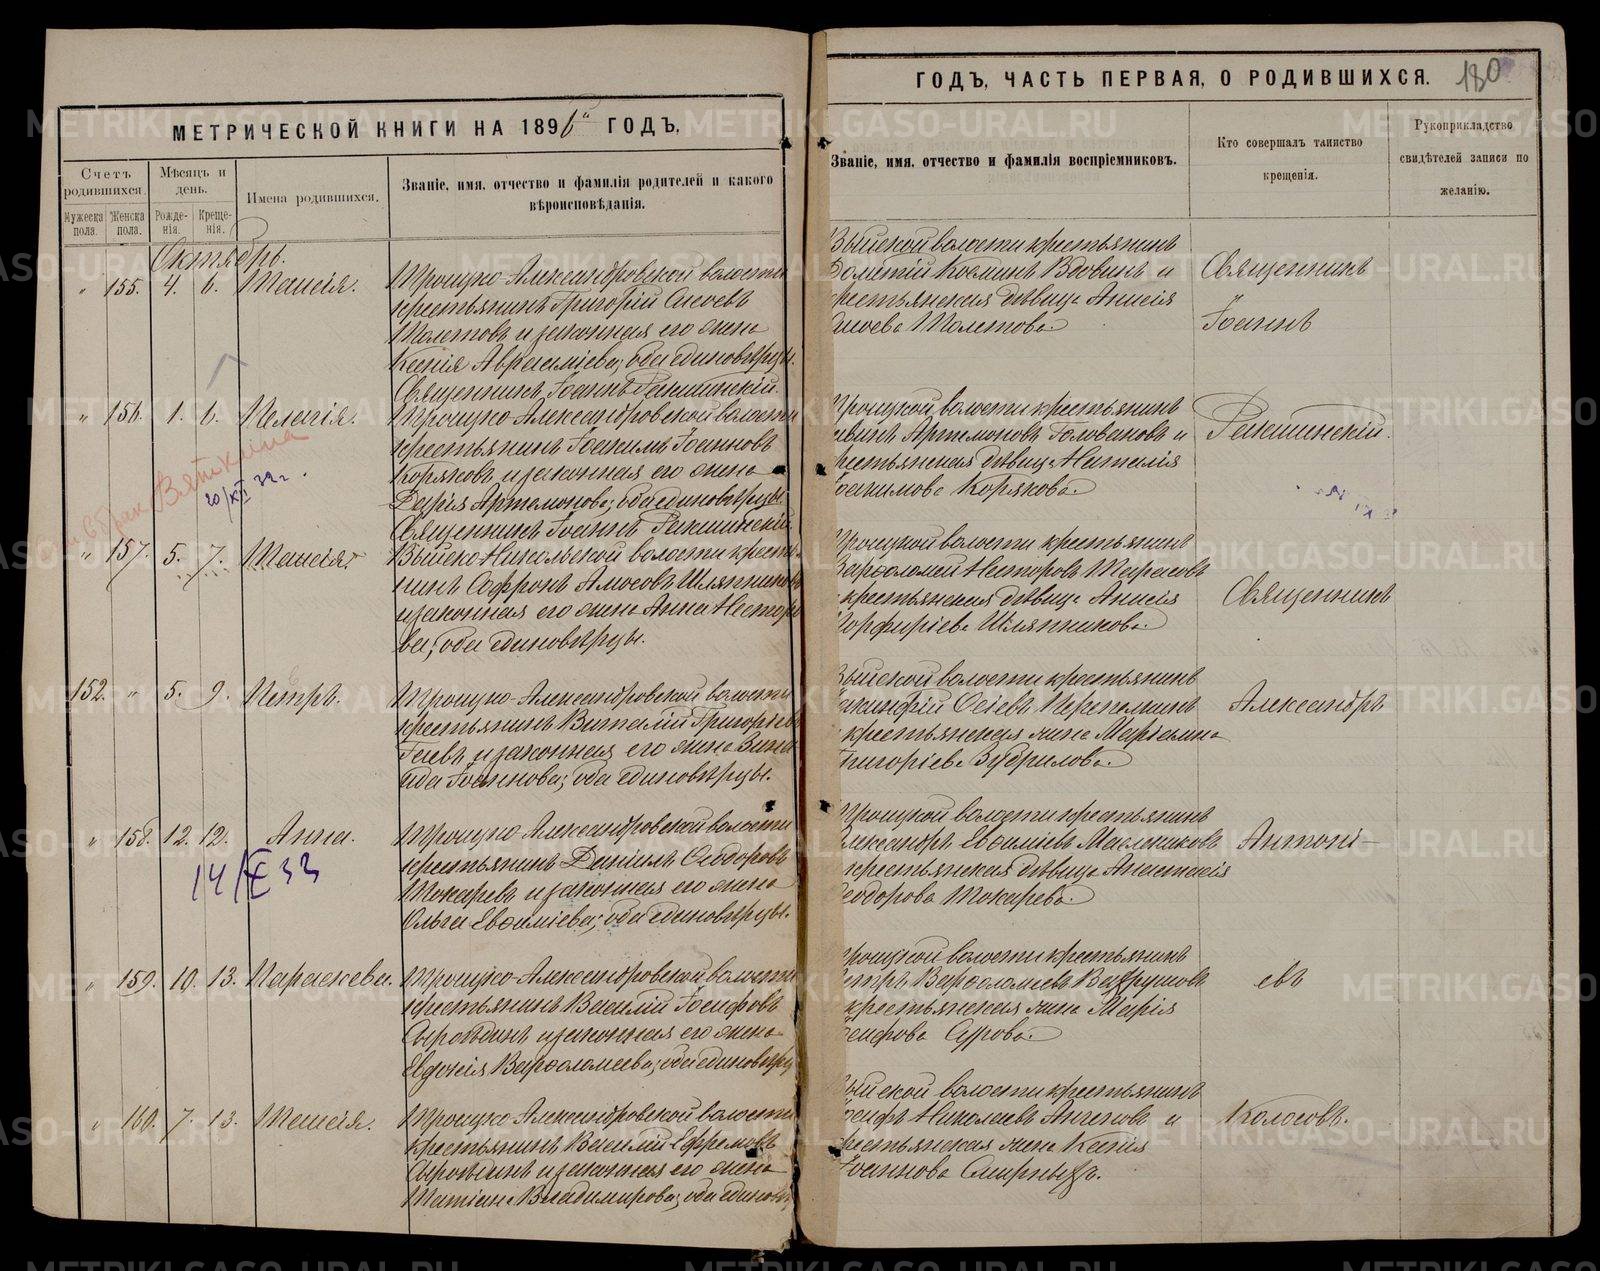 МЕТРИЧЕСКОЙ КНИГИ НА 1896й ГОДЪ,
Счетъ родившихся.
Мужеска пола.
Женска пола.
Мѣсяцъ и день.
Рожде-
нія.
Креще-
нія.
Имена родившихся.
Званіе, имя, отчество и фамилія родителей и какого
вѣроисповѣданія.
Октябрь.
" 155. 4. 6. Таисія.
Троицко-Александровской волости
крестьянинъ Григорій Сисоевъ
и законная его жена
Ксенія Авраамiева; оба единовѣрцы.
Священникъ Іоаннъ
" 156. 1. 6. Пелагія.
Троицко-Александровской волости
крестьянинъ Іоакимъ Іоанновъ
Коряковъ и законная его жена
Дарія Артемонова; оба единовѣрцы.
Священникъ Іоаннъ
Вяткина
20/XII 39 г.
" 157. 5. 7. Таисія.
Выйско-Никольской волости крестья-
нинъ Софронъ Амосовъ Шляпниковъ
и законная его жена Анна Несторо-
ва; оба единовѣрцы.
152. " 5. 9. Петръ.
Троицко-Александровской волости
крестьянинъ Виталій Григоріевъ
Гаевъ и законная его жена Зина-
ида Іоаннова; оба единовѣрцы.
" 158. 12. 12. Анна.
14/X 33
Троицко-Александровской волости
крестьянинъ Даніилъ Ѳеодоровъ
Токаревъ и законная его жена
Ольга Евѳиміева; оба единовѣрцы.
" 159. 10. 13. Параскева.
Троицко-Александровской волости
крестьянинъ Василій Іосифовъ
Сыроѣдинъ и законная его жена
Евдокія Варѳоломеева; оба единовѣрцы
" 160. 7. 13. Таисія.
Троицко-Александровской волости
крестьянинъ Василій Ефремовъ
и законная его жена
Татіана Владимирова; оба единовѣр
ГОДЪ, ЧАСТЬ ПЕРВАЯ, О РОДИВШИХСЯ.
180
Званіе, имя, отчество и фамилія воспріемниковъ.
Кто совершалъ таинство
крещенія.
Рукоприкладство
свидѣтелей записи по
желанію.
Выйской волости крестьянинъ
Дометій Косминъ Вдовинъ и
крестьянская дѣвица Анисія
Сисоева
Троицкой волости крестьянинъ
Артемоновъ Головановъ и
крестьянская дѣвица Наталія
Іоакимова Корякова.
Троицкой волости крестьянинъ
Варѳоломей Несторовъ Тарасовъ
крестьянская дѣвица Анисія
Порфиріева Шляпникова.
Выйской волости крестьянинъ
Осіевъ Перетолкинъ
крестьянская жена Маріамна
Григоріева Зубрилова.
Троицкой волости крестьянинъ
Александръ Евѳиміевъ Масленниковъ
крестьянская дѣвица Анастасія
Ѳеодорова Токарева.
Троицкой волости крестьянинъ
Петръ Варѳоломеевъ Вахрушевъ
крестьянская жена Марія
Іосифова Сурова.
Выйской волости крестьянинъ
Іосифъ Николаевъ и
крестьянская жена Ксенія
Іоаннова Смирныхъ.
Священникъ
Іоаннъ
Священникъ
Александръ
Антоні-
евъ
Колосовъ.
METRIKI.GASO-URAL.RU